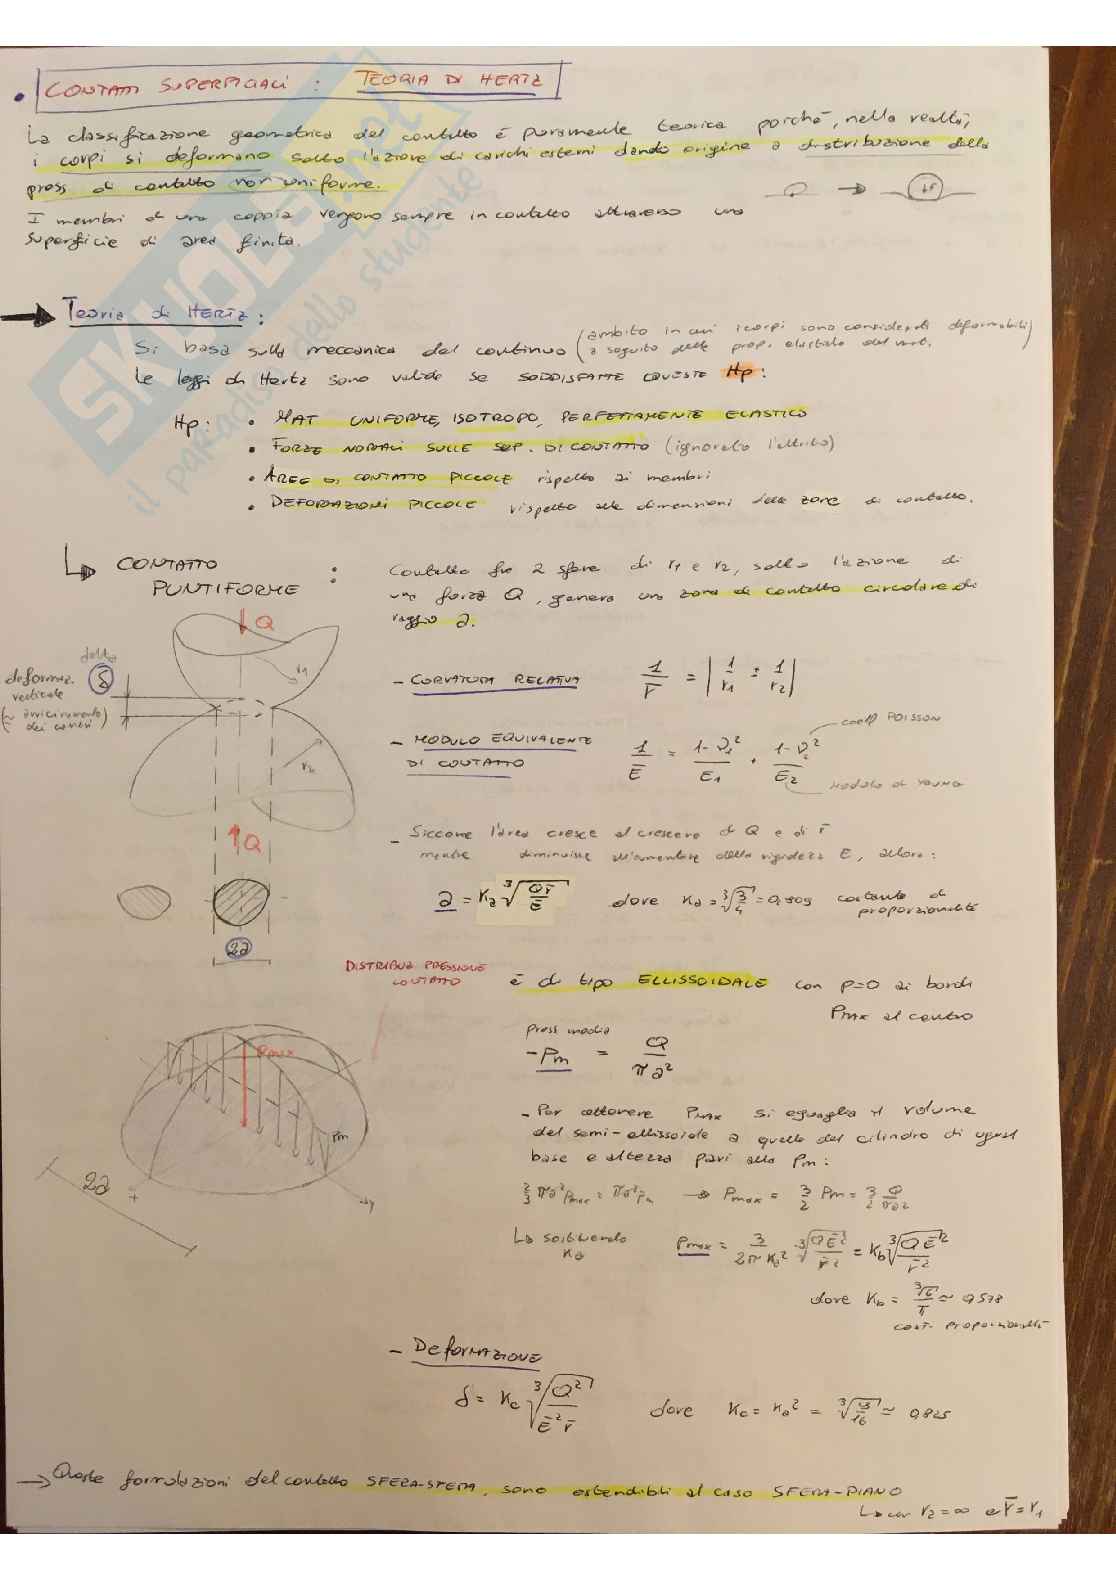 • CONTATTI SUPERFICIALI : TEORIA DI HERTZ
La classificazione geometrica del contatto è puramente teorica poiché, nella realtà,
i corpi si deformano sotto l'azione di carichi esterni dando origine a distribuzione della
press di contatto non uniforme.
I membri di una coppia vengono sempre in contatto attraverso una
superficie di area finita.
→ Teoria di HERTZ :
Si basa sulla meccanica del continuo (ambito in cui i corpi sono considerati deformabili
a seguito delle prop. elastiche del mat.)
Le leggi di Hertz sono valide se SODDISFATTE QUESTE Hp :
Hp : • MAT UNIFORME, ISOTROPO, PERFETTAMENTE ELASTICO
• FORZE NORMALI SULLE SUP. DI CONTATTO (ignorato l'attrito)
• AREE DI CONTATTO PICCOLE rispetto ai membri
• DEFORMAZIONI PICCOLE rispetto alle dimensioni delle zone di contatto.
↳ CONTATTO
PUNTIFORME :
Contatto fra 2 sfere di r1 e r2, sotto l'azione di
una forza Q, genera una zona di contatto circolare di
raggio a.
Q
r1
delta
deformaz. δ
verticale
(≈ avvicinamento
dei centri)
r2
Q
2a
- CURVATURA RELATIVA 1/r̄ = | 1/r1 ± 1/r2 |
- MODULO EQUIVALENTE
DI CONTATTO 1/Ē = 1-ν1²/E1 + 1-ν2²/E2
coeff POISSON
MODULO DI YOUNG
- Siccome l'area cresce al crescere di Q e di r̄
mentre diminuisce all'aumentare della rigidezza E, allora :
a = Ka ∛(Qr̄/Ē) dove Ka = ∛(3/4) = 0,909 costante di
proporzionalità
DISTRIBUZ PRESSIONE
CONTATTO
è di tipo ELLISSOIDALE con p=0 ai bordi
Pmax al centro
press media
- Pm = Q/πa²
Pmax
Pm
2a
y
- Per ottenere Pmax si eguaglia il volume
del semi-ellissoide a quello del cilindro di ugual
base e altezza pari alla Pm :
2/3 πa² Pmax = πa² Pm → Pmax = 3/2 Pm = 3/2 Q/πa²
↳ sostituendo
Ka
Pmax = 3/(2π Ka²) ∛(QĒ²/r̄²) = Kb ∛(QĒ²/r̄²)
dove Kb = ∛6/π ≈ 0,578
cost. proporzionalità
- Deformazione
δ = Kc ∛(Q²/Ē²r̄) dove Kc = Ka² = ∛(9/16) ≈ 0,825
→ Queste formulazioni del contatto SFERA-SFERA, sono estendibili al caso SFERA-PIANO
↳ con r2 = ∞ e r̄ = r1
SKUOLA.net
il paradiso dello studente